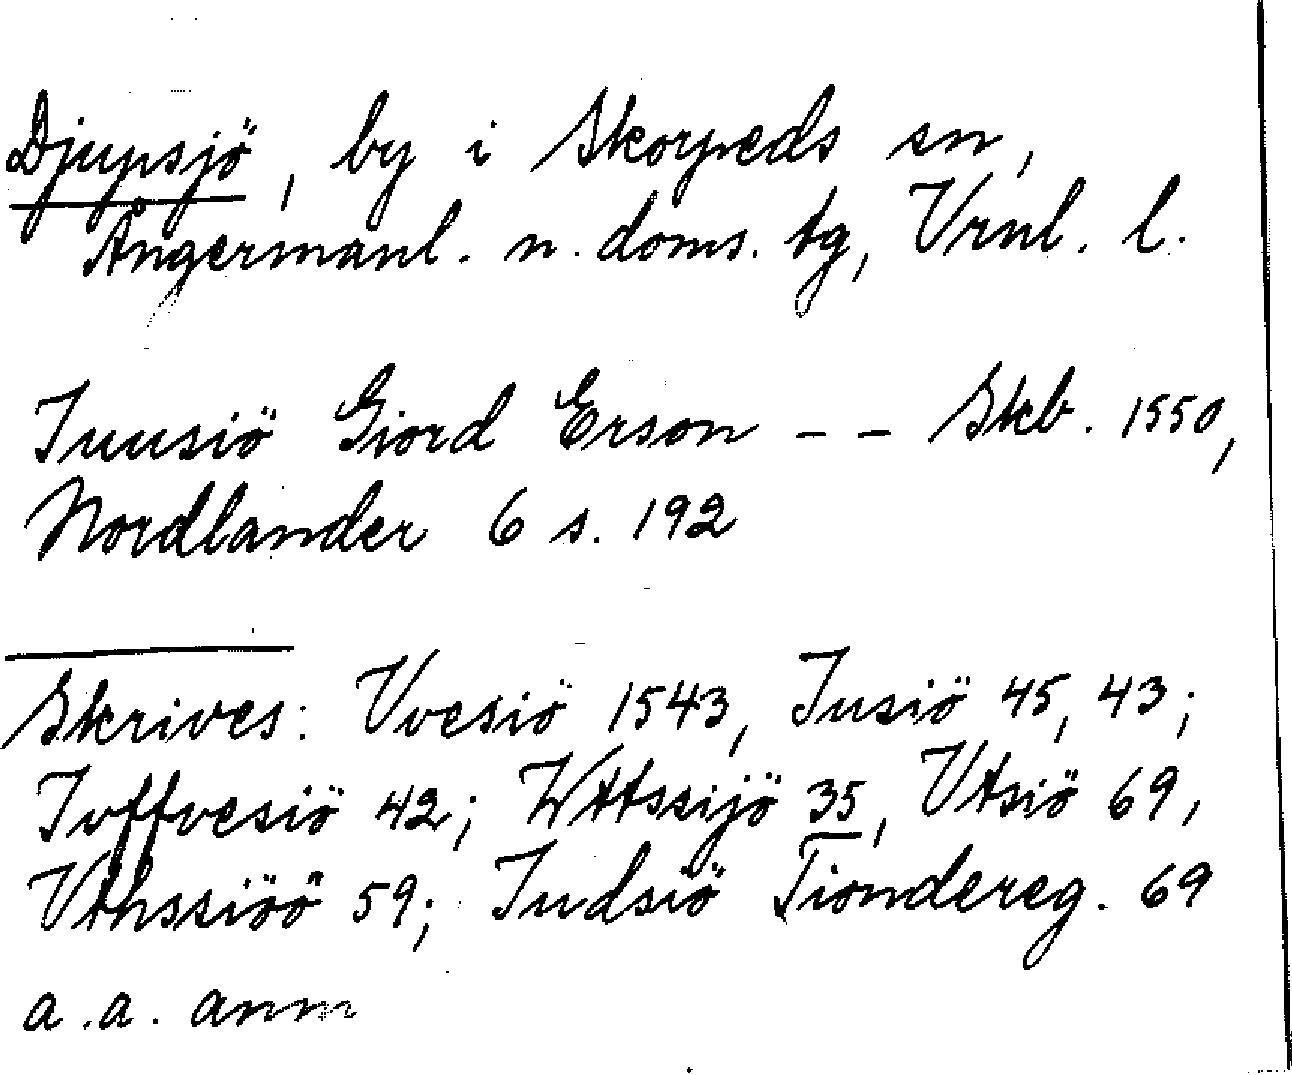 Djupsjö, by i Skorpeds sn,
Ångermanl. n. doms. tg, Vrnl. l.
Juusiö Giord Erson -- Skb. 1550,
Nordlander 6 s. 192
Skrives: Vvesiö 1543, Jusiö 45, 43;
Joffvesiö 42; Wttssijö 35, Vtsiö 69,
Vthssiöö 59; Judsiö Tiondereg. 69
a.a. anm